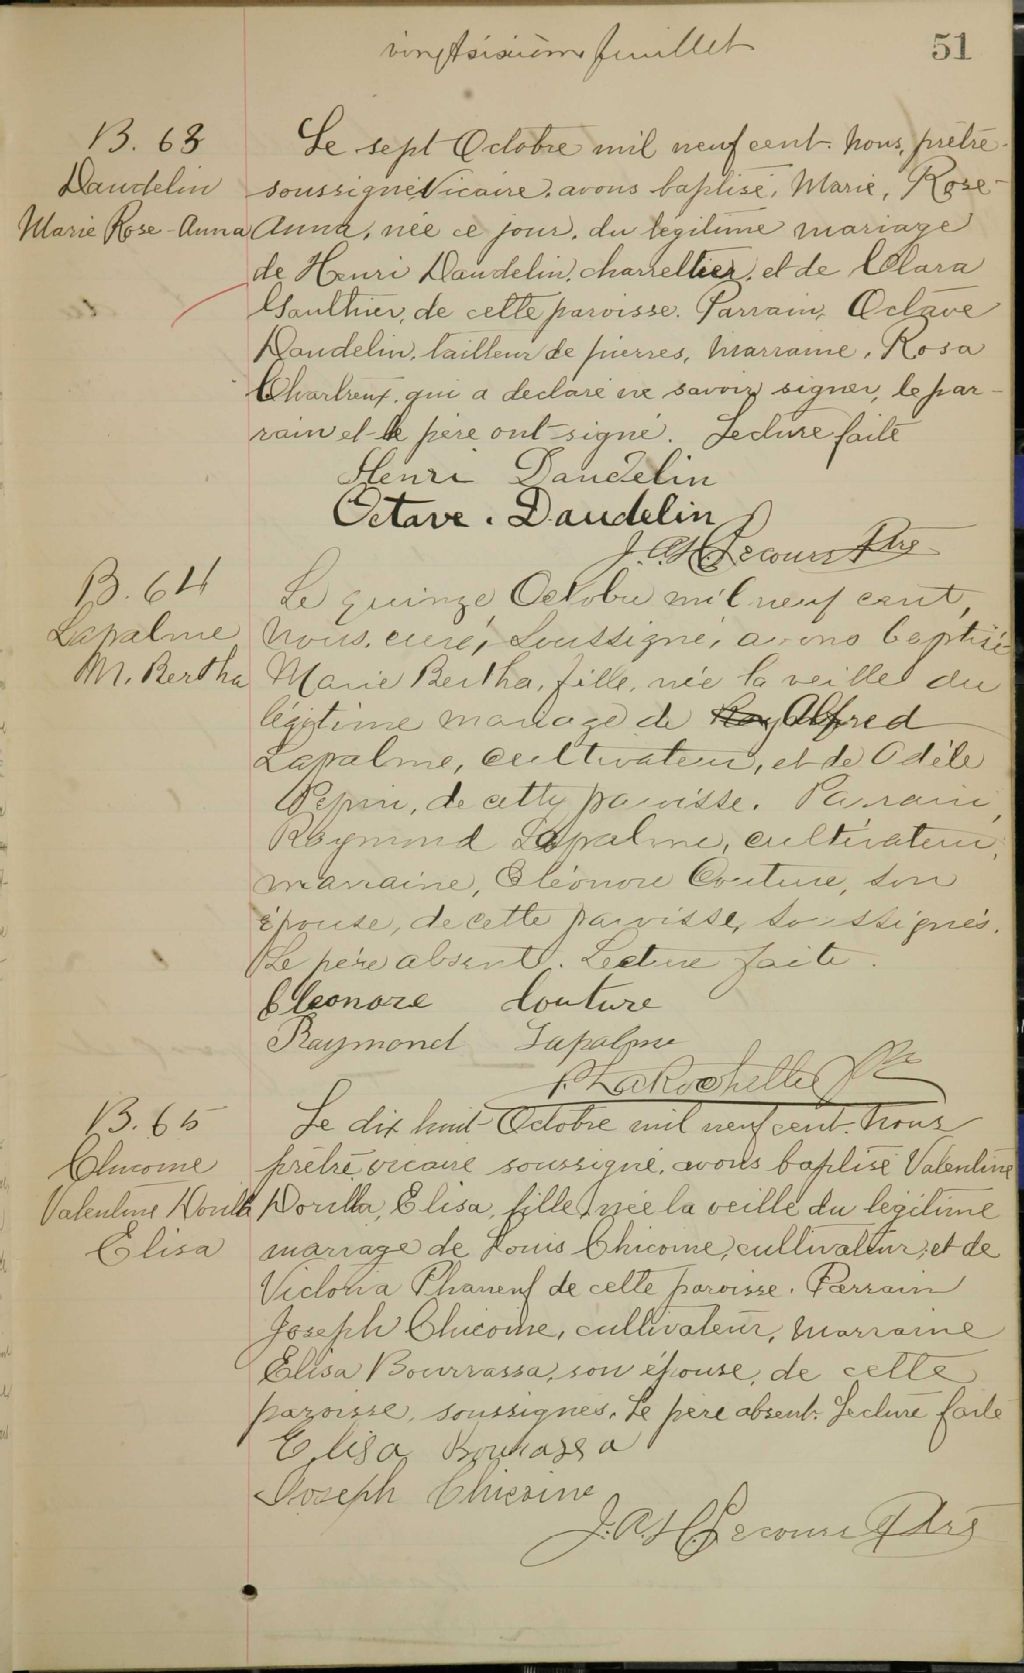 vingtsixième feuillet
51
B. 63
Daudelin
Marie Rose-Anna
Le sept Octobre mil neuf cent. Nous, prêtre
soussigné, Vicaire, avons baptisé, Marie, Rose-
Anna, née ce jour, du légitime mariage
de Henri Daudelin, charrettier, et de Clara
Gaulthier, de cette paroisse. Parrain, Octave
Daudelin, tailleur de pierres, Marraine, Rosa
Chartreux, qui a declaré ne savoir signer, le par-
rain et le père ont signé. Lecture faite
Henri Daudelin
Octave. Daudelin
J. A. H. Lecours Ptre
B. 64
Lapalme
M. Bertha
Le quinze Octobre mil neuf cent,
Nous, curé, soussigné, avons baptisé
Marie Bertha, fille, née la veille du
légitime mariage de Ray Alfred
Lapalme, cultivateur, et de Odèle
Pepin, de cette paroisse. Parrain,
Raymond Lapalme, cultivateur,
marraine, Eléonore Couture, son
épouse, de cette paroisse, soussignés.
Le père absent. Lecture faite.
Eleonore Couture
Raymond Lapalme
LaRochelle Ptre
B. 65
Chicome
Valentine Dorilla
Elisa
Le dix huit Octobre mil neuf cent. Nous
prêtre vicaire soussigné, avons baptisé Valentine
Dorilla, Elisa, fille, née la veille du légitime
mariage de Louis Chicome, cultivateur, et de
Victoria Phaneuf de cette paroisse. Parrain
Joseph Chicoine, cultivateur, Marraine
Elisa Bourrassa, son épouse, de cette
paroisse, soussignés. Le père absent. Lecture faite
Elisa Bourassa
Joseph Chicoine
J. A. H. Lecours Ptre